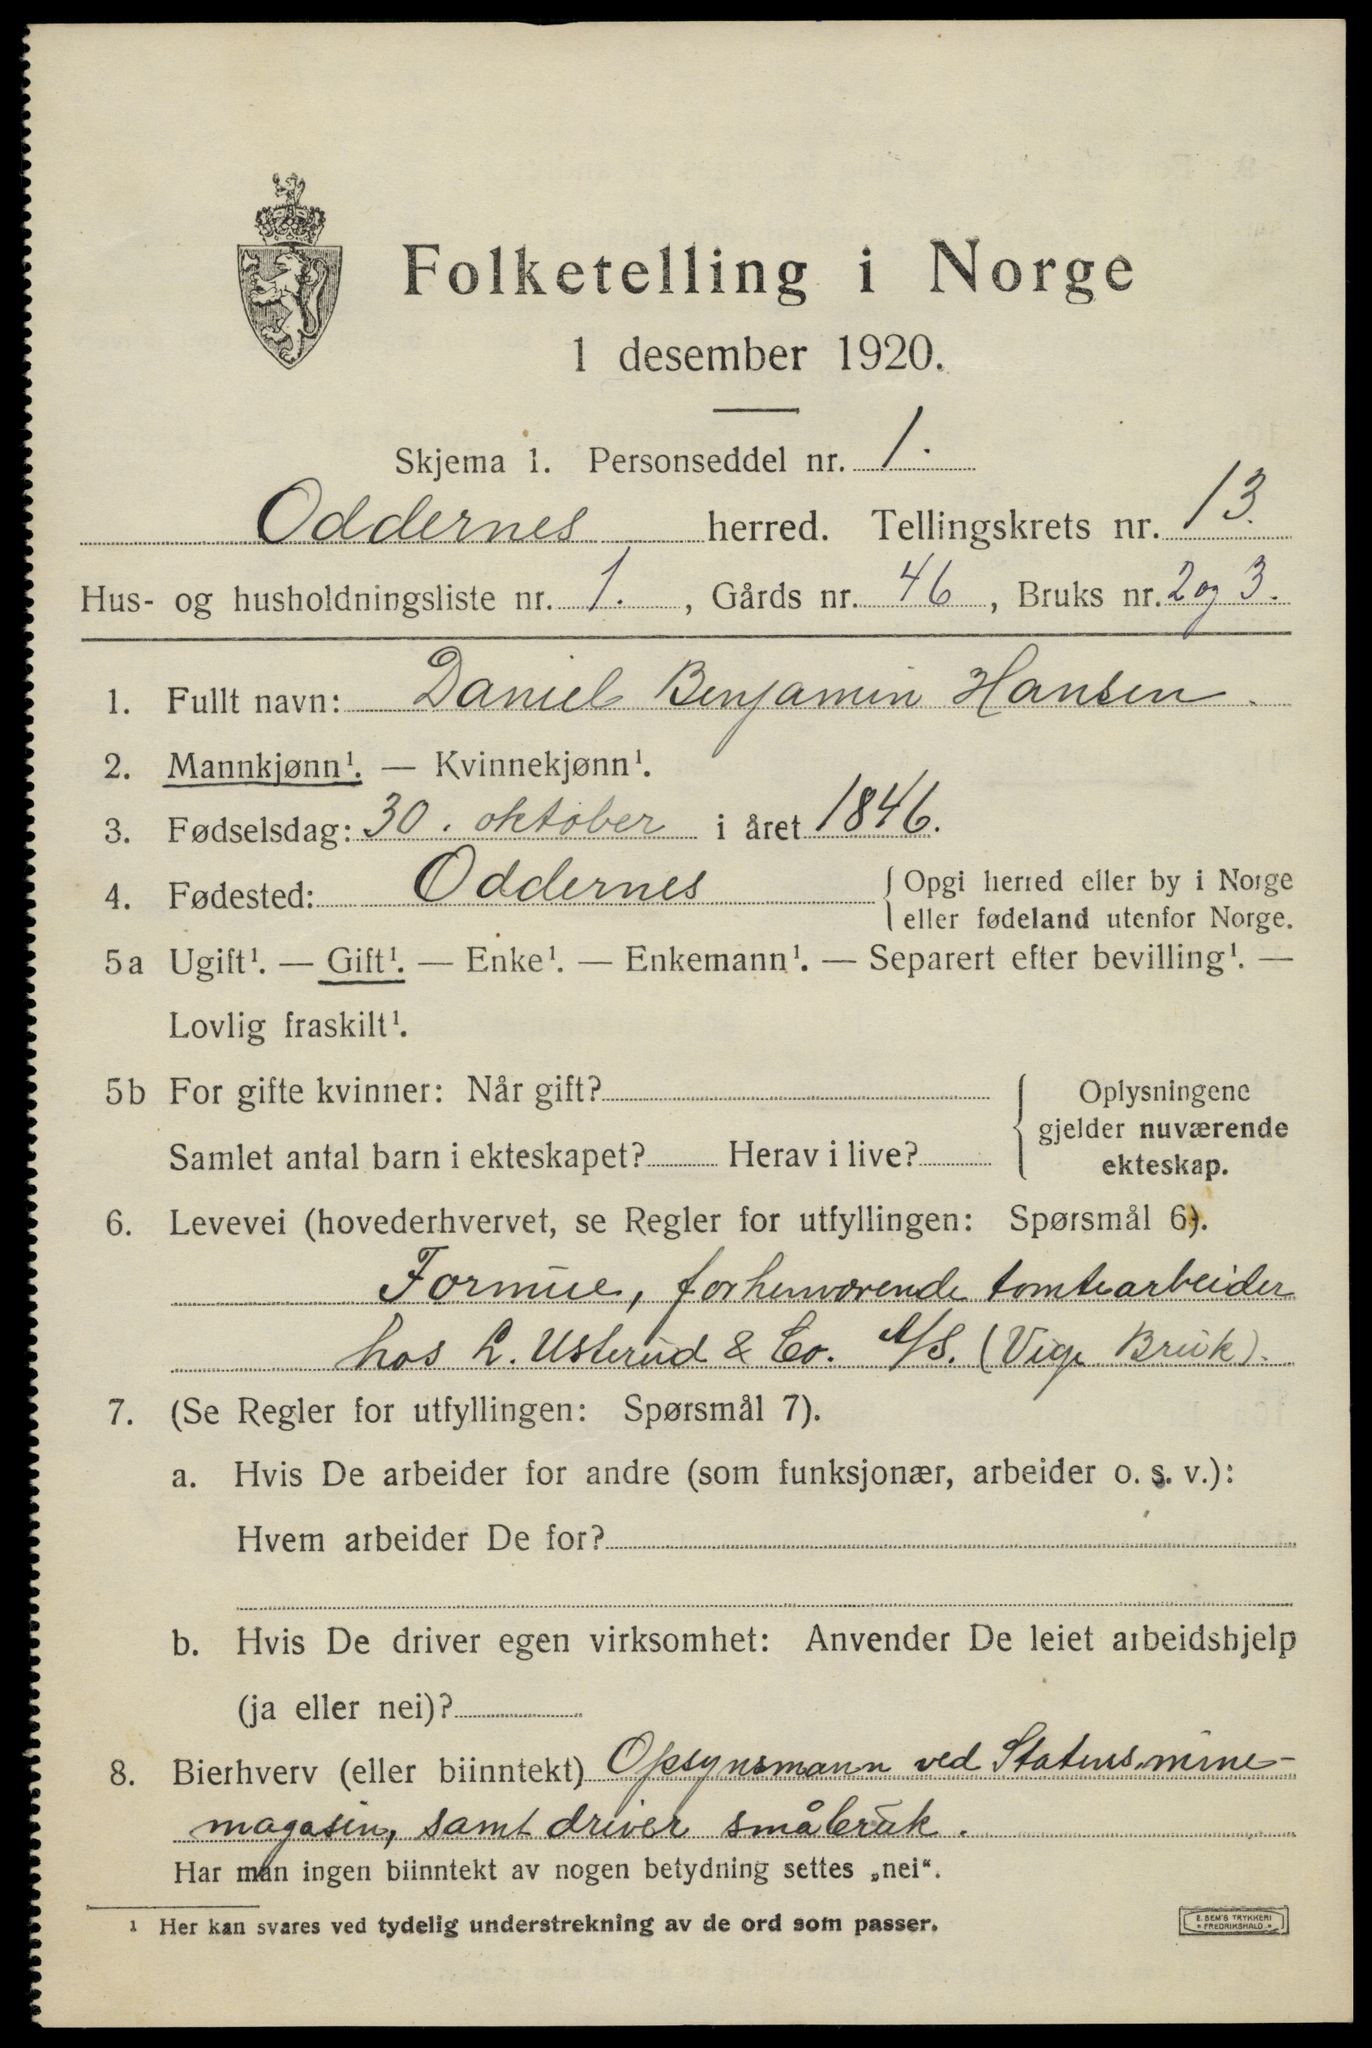 Folketelling i Norge
1 desember 1920.
Skjema 1. Personseddel nr. 1.
Oddernes herred. Tellingskrets nr. 13.
Hus- og husholdningsliste nr. 1., Gårds nr. 46, Bruks nr. 2 og 3.
1. Fullt navn: Daniel Benjamin Hansen.
2. Mannkjønn¹. — Kvinnekjønn¹.
3. Fødselsdag: 30. oktober i året 1846.
4. Fødested: Oddernes { Opgi herred eller by i Norge
eller fødeland utenfor Norge.
5a Ugift¹. — Gift¹. — Enke¹. — Enkemann¹. — Separert efter bevilling¹. —
Lovlig fraskilt¹.
5b For gifte kvinner: Når gift?
Samlet antal barn i ekteskapet? Herav i live?
Oplysningene
gjelder nuværende
ekteskap.
6. Levevei (hovederhvervet, se Regler for utfyllingen: Spørsmål 6).
Formue, forhenværende tomtearbeider
hos L. Usterud & Co. A/S. (Vige Bruk).
7. (Se Regler for utfyllingen: Spørsmål 7).
a. Hvis De arbeider for andre (som funksjonær, arbeider o. s. v.):
Hvem arbeider De for?
b. Hvis De driver egen virksomhet: Anvender De leiet arbeidshjelp
(ja eller nei)?
8. Bierhverv (eller biinntekt) Opsynsmann ved Statens mine-
magasin, samt driver småbruk.
Har man ingen biinntekt av nogen betydning settes „nei“.
¹ Her kan svares ved tydelig understrekning av de ord som passer.
E. SEM'S TRYKKERI
* FREDRIKSHALD *